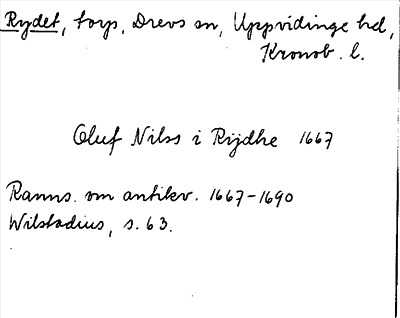 Rydet, torp, Drevs sn, Uppvidinge hd,
Kronob. l.
Oluf Nilss i Rijdhe 1667
Ranns. om antikv. 1667-1690
Wilstadius, s. 63.